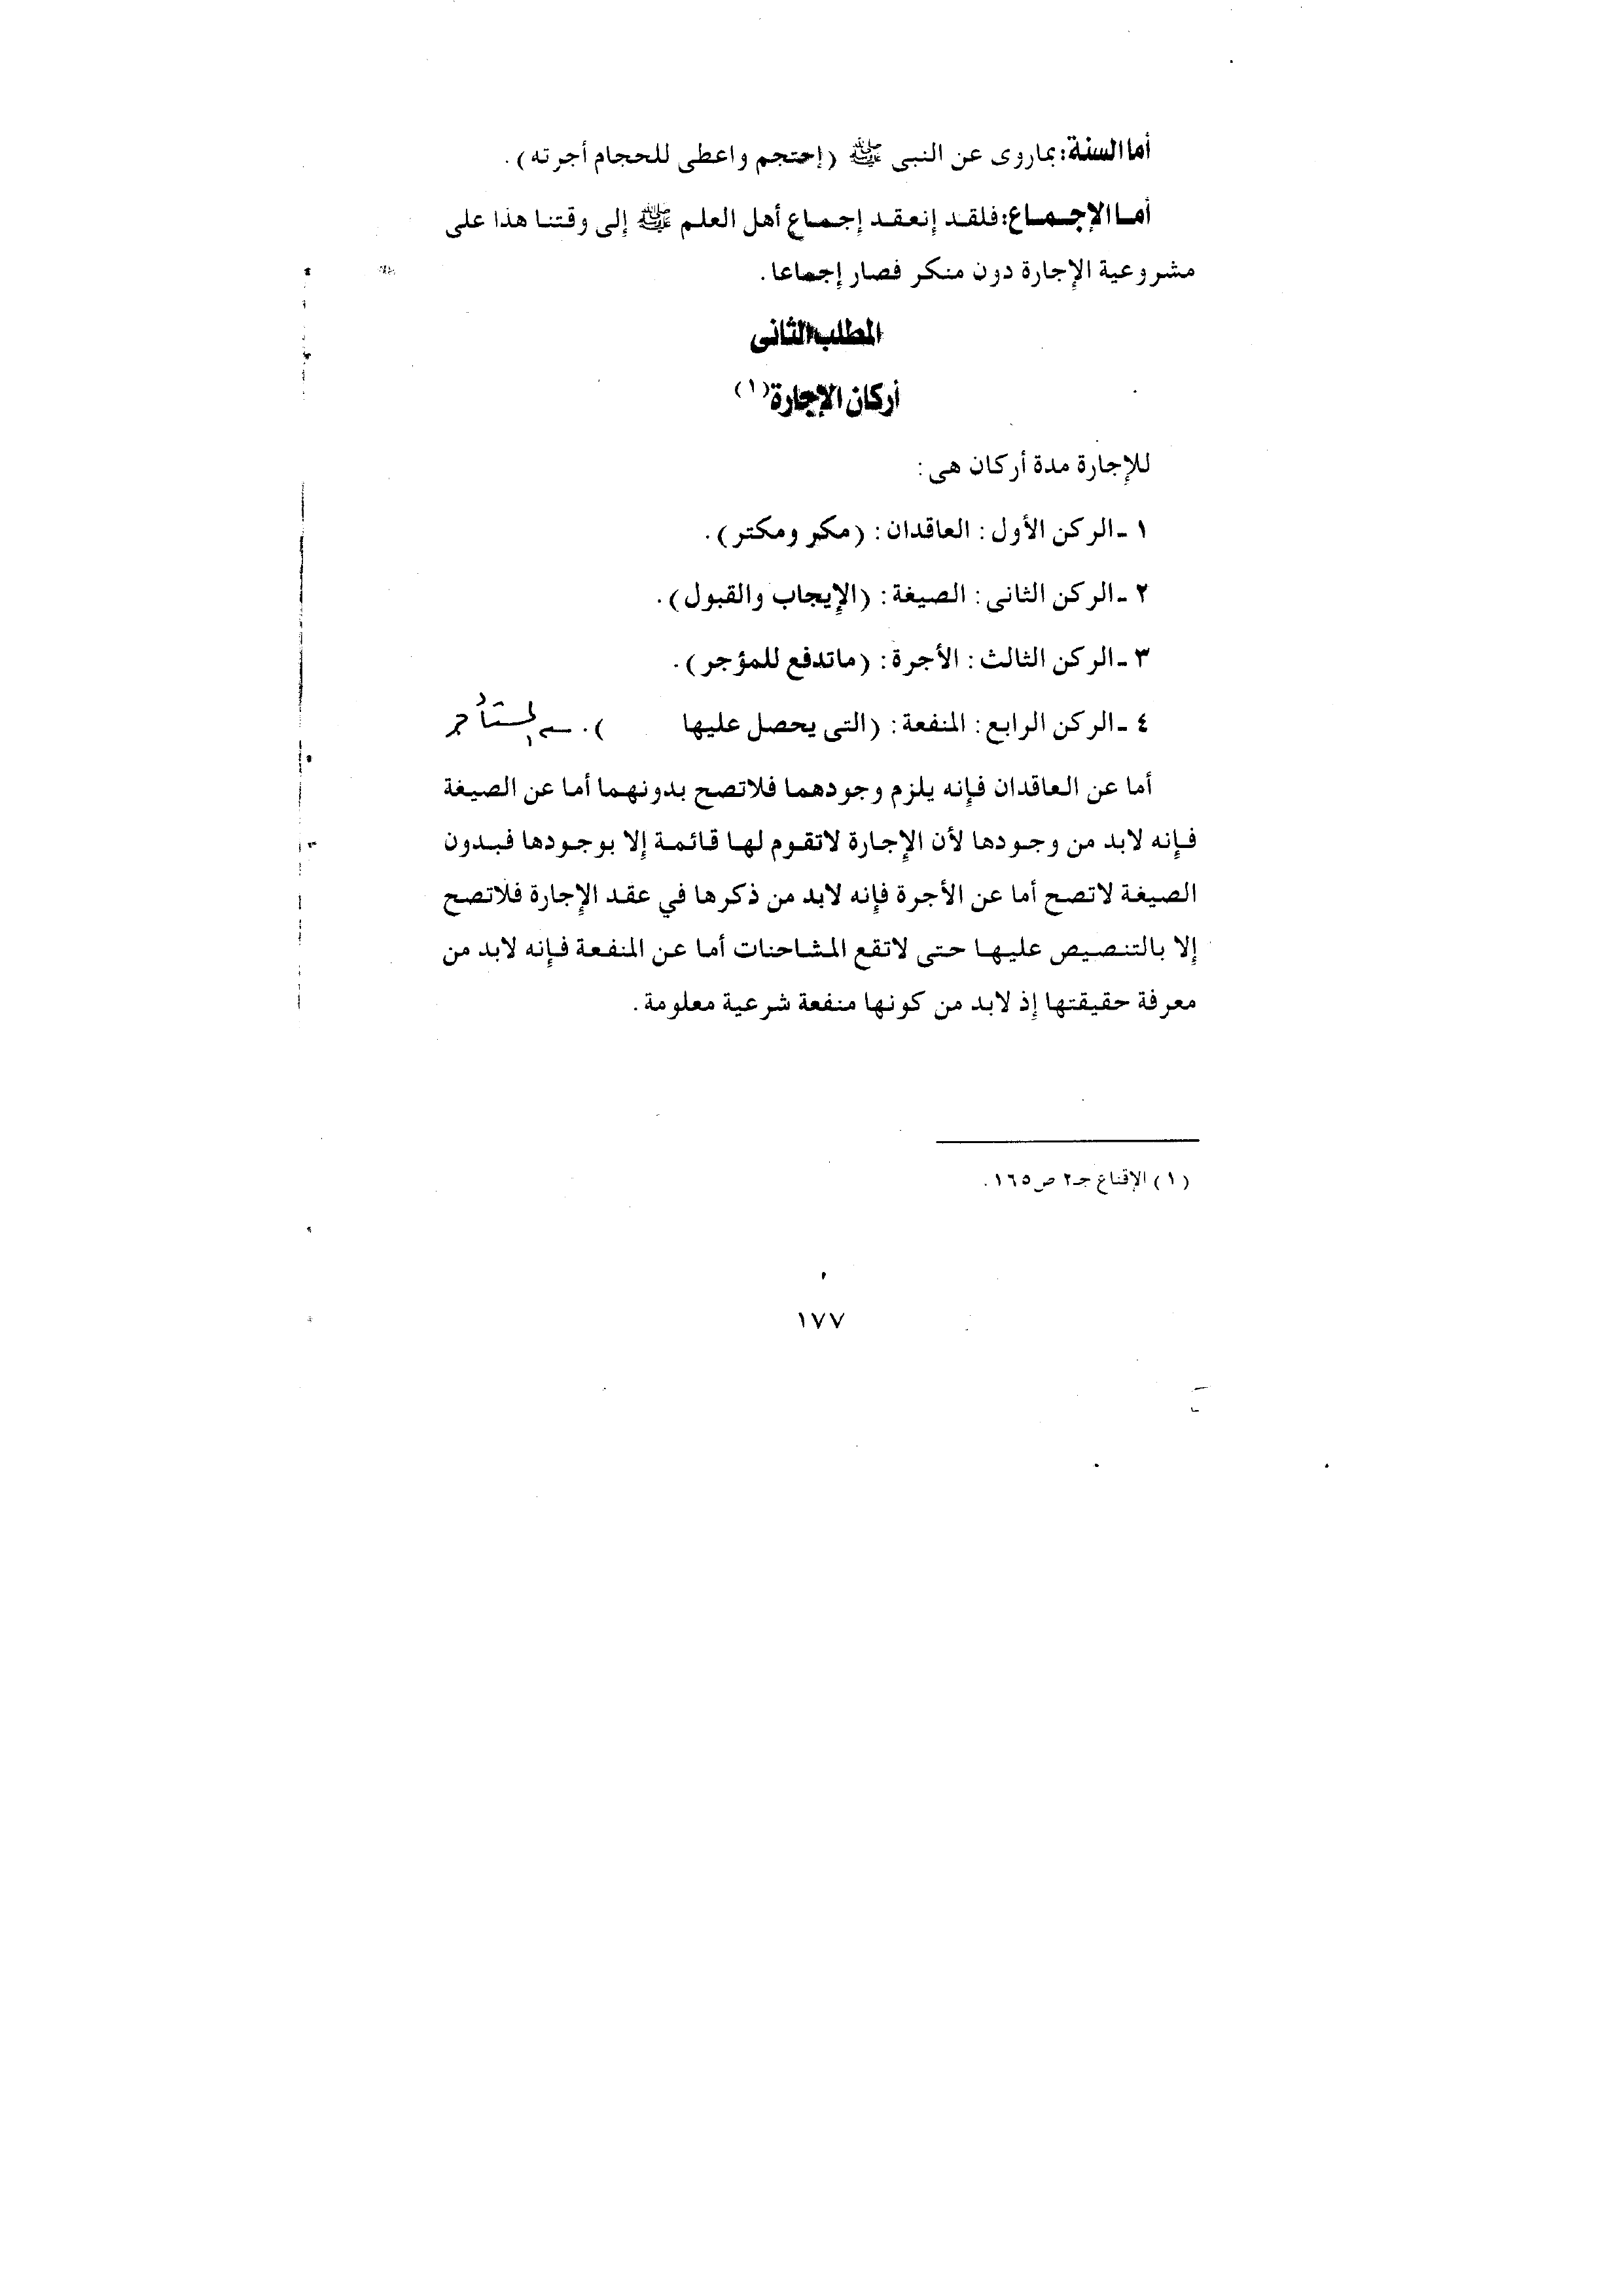 أما السنة: بماروى عن النبى ﷺ (إحتجم واعطى للحجام أجرته).
أما الإجماع: فلقد إنعقد إجماع أهل العلم ﷺ إلى وقتنا هذا على
مشروعية الإجارة دون منكر فصار إجماعا.
المطلب الثانى
أركان الإجارة(١)
للإجارة مدة أركان هى:
١ ـ الركن الأول: العاقدان: (مكر ومكتر).
٢ ـ الركن الثانى: الصيغة: (الإيجاب والقبول).
٣ ـ الركن الثالث: الأجرة: (ماتدفع للمؤجر).
٤ ـ الركن الرابع: المنفعة: (التى يحصل عليها ). المستأجر
أما عن العاقدان فإنه يلزم وجودهما فلاتصح بدونهما أما عن الصيغة
فإنه لابد من وجودها لأن الإجارة لاتقوم لها قائمة إلا بوجودها فبدون
الصيغة لاتصح أما عن الأجرة فإنه لابد من ذكرها في عقد الإجارة فلاتصح
إلا بالتنصيص عليها حتى لاتقع المشاحنات أما عن المنفعة فإنه لابد من
معرفة حقيقتها إذ لابد من كونها منفعة شرعية معلومة.
(١) الإقناع جـ٢ ص١٦٥.
١٧٧